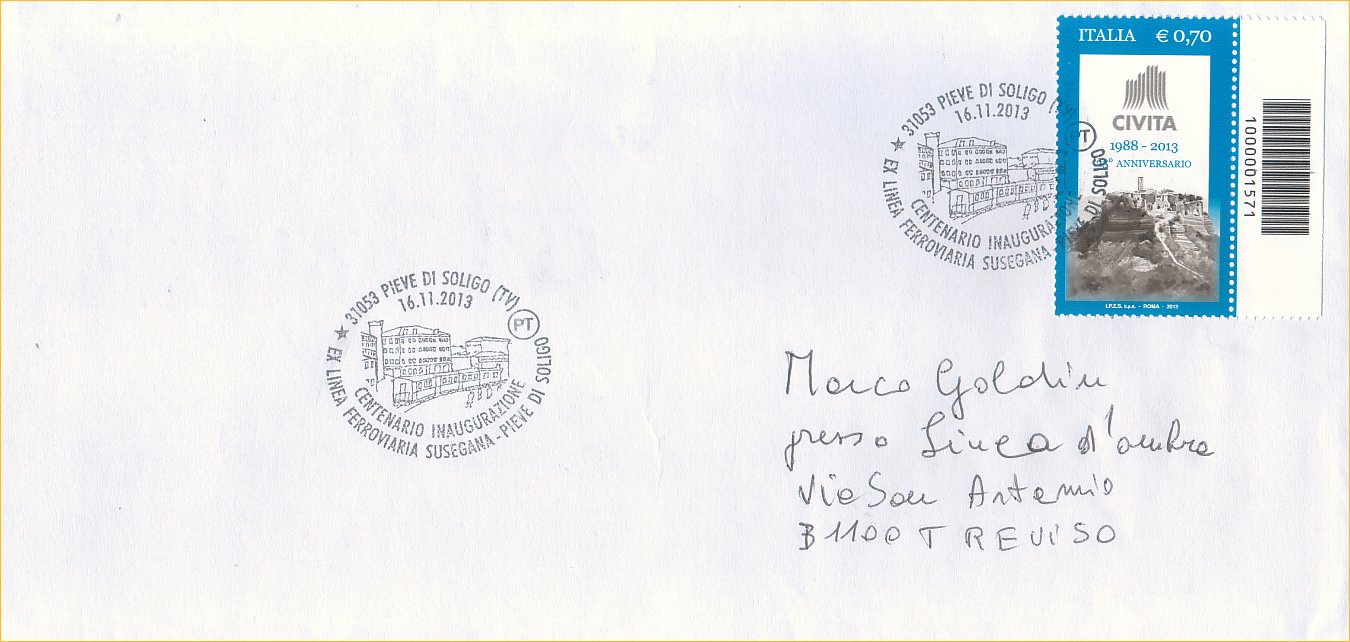 ITALIA € 0,70
CIVITA
1988 - 2013
° ANNIVERSARIO
I.P.Z.S. S.p.A. - ROMA - 2013
1000001571
31053 PIEVE DI SOLIGO (TV)
16.11.2013
PT
CENTENARIO INAUGURAZIONE
EX LINEA FERROVIARIA SUSEGANA - PIEVE DI SOLIGO
31053 PIEVE DI SOLIGO (TV)
16.11.2013
PT
CENTENARIO INAUGURAZIONE
EX LINEA FERROVIARIA SUSEGANA - PIEVE DI SOLIGO
Marco Goldin
presso Linea d'ombra
Via San Antonio
31100 TREVISO